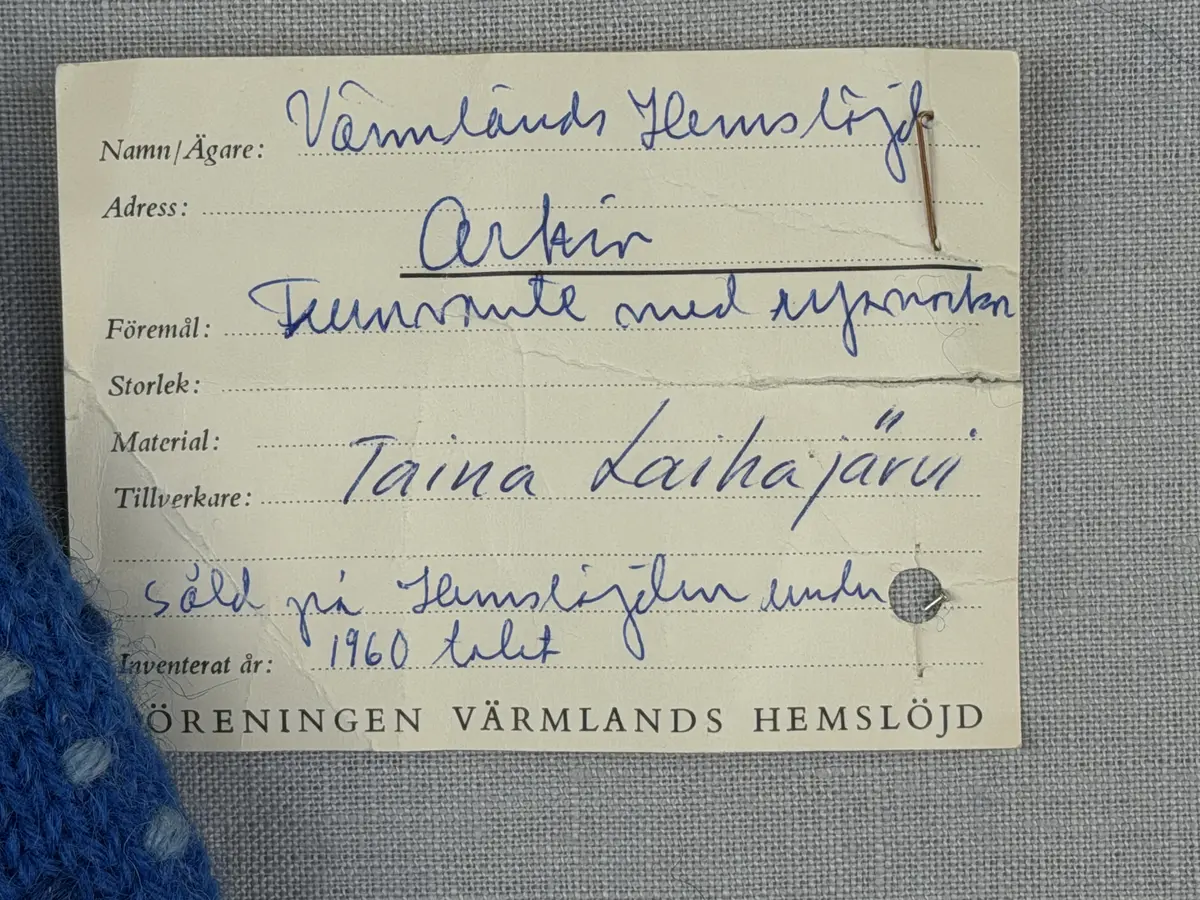 Namn/Ägare: Värmlands Hemslöjd
Adress:
Arkiv
Föremål: Tumvante med
Storlek:
Material:
Tillverkare: Taina Laihajärvi
såld på Hemslöjden under
Inventerat år: 1960 talet
ÖRENINGEN VÄRMLANDS HEMSLÖJD